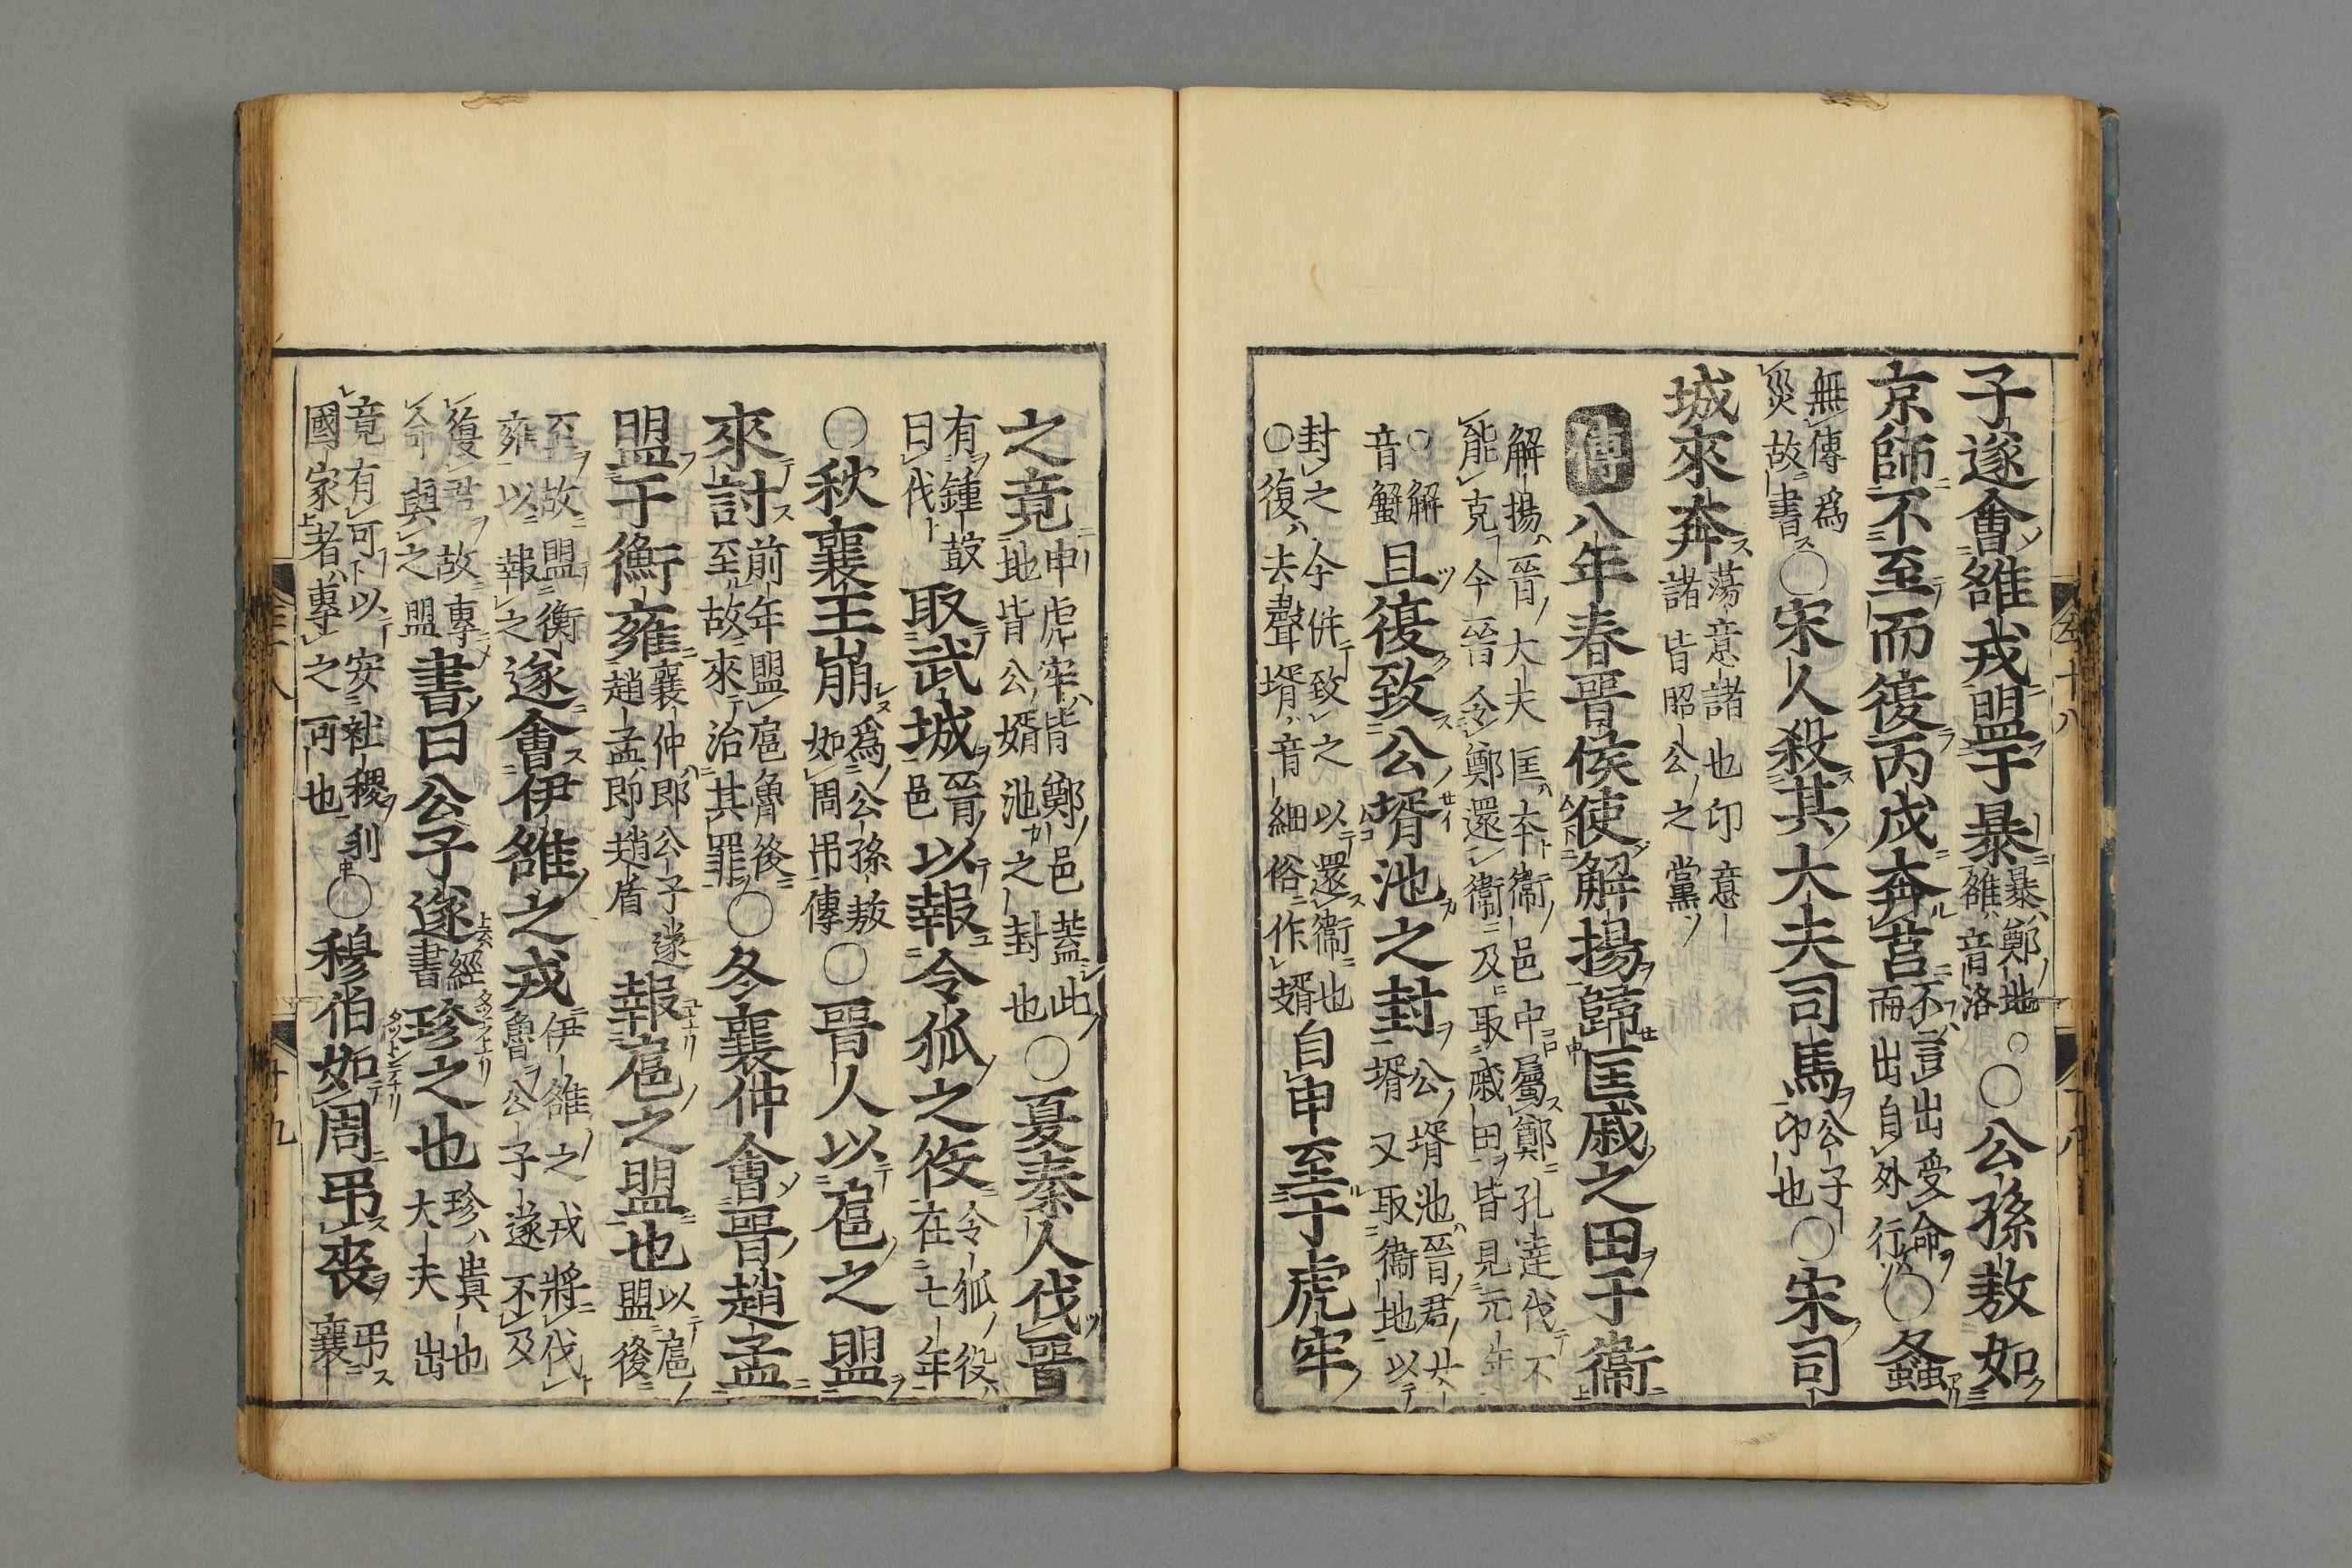 子遂會雒戎盟于暴
暴鄭地
雒音洛
○公孫敖如
京師不至而復丙戌奔莒
不言出受命
而出自外行
○螽
無傳爲
災故書
○宋人殺其大夫司馬
公子
卬也
○宋司
城來奔
蕩意諸也卬意
諸皆昭公之黨
傳
八年春晉侯使解揚歸匡戚之田于衞
解揚晉大夫匡本衞邑中屬鄭孔達伐不
能克今晉令鄭還衞及取戚田皆見元年
○解
音蟹
且復致公壻池之封
公壻池晉君女
壻又取衞地以
封之今併致之以還衞也
○復去聲壻音細俗作婿
自申至于虎牢
之竟
申虎牢皆鄭邑蓋此
地皆公婿池之封也
○夏秦人伐晉
有鍾鼓
曰伐
取武城
晉
邑
以報令狐之役
令狐役
在七年
○秋襄王崩
爲公孫敖
如周弔傳
○晉人以扈之盟
來討
前年盟扈魯後
至故來治其罪
○冬襄仲會晉趙孟
盟于衡雍
襄仲即公子遂
趙孟即趙盾
報扈之盟也
以扈
盟後
至故盟衡
雍以報之
遂會伊雒之戎
伊雒之戎將伐
魯公子遂不及
復君故專
命與之盟
書曰公子遂
經
書
珍之也
珍貴也
大夫出
竟有可以安社稷利
國家者專之可也
○穆伯如周弔喪
弔
襄